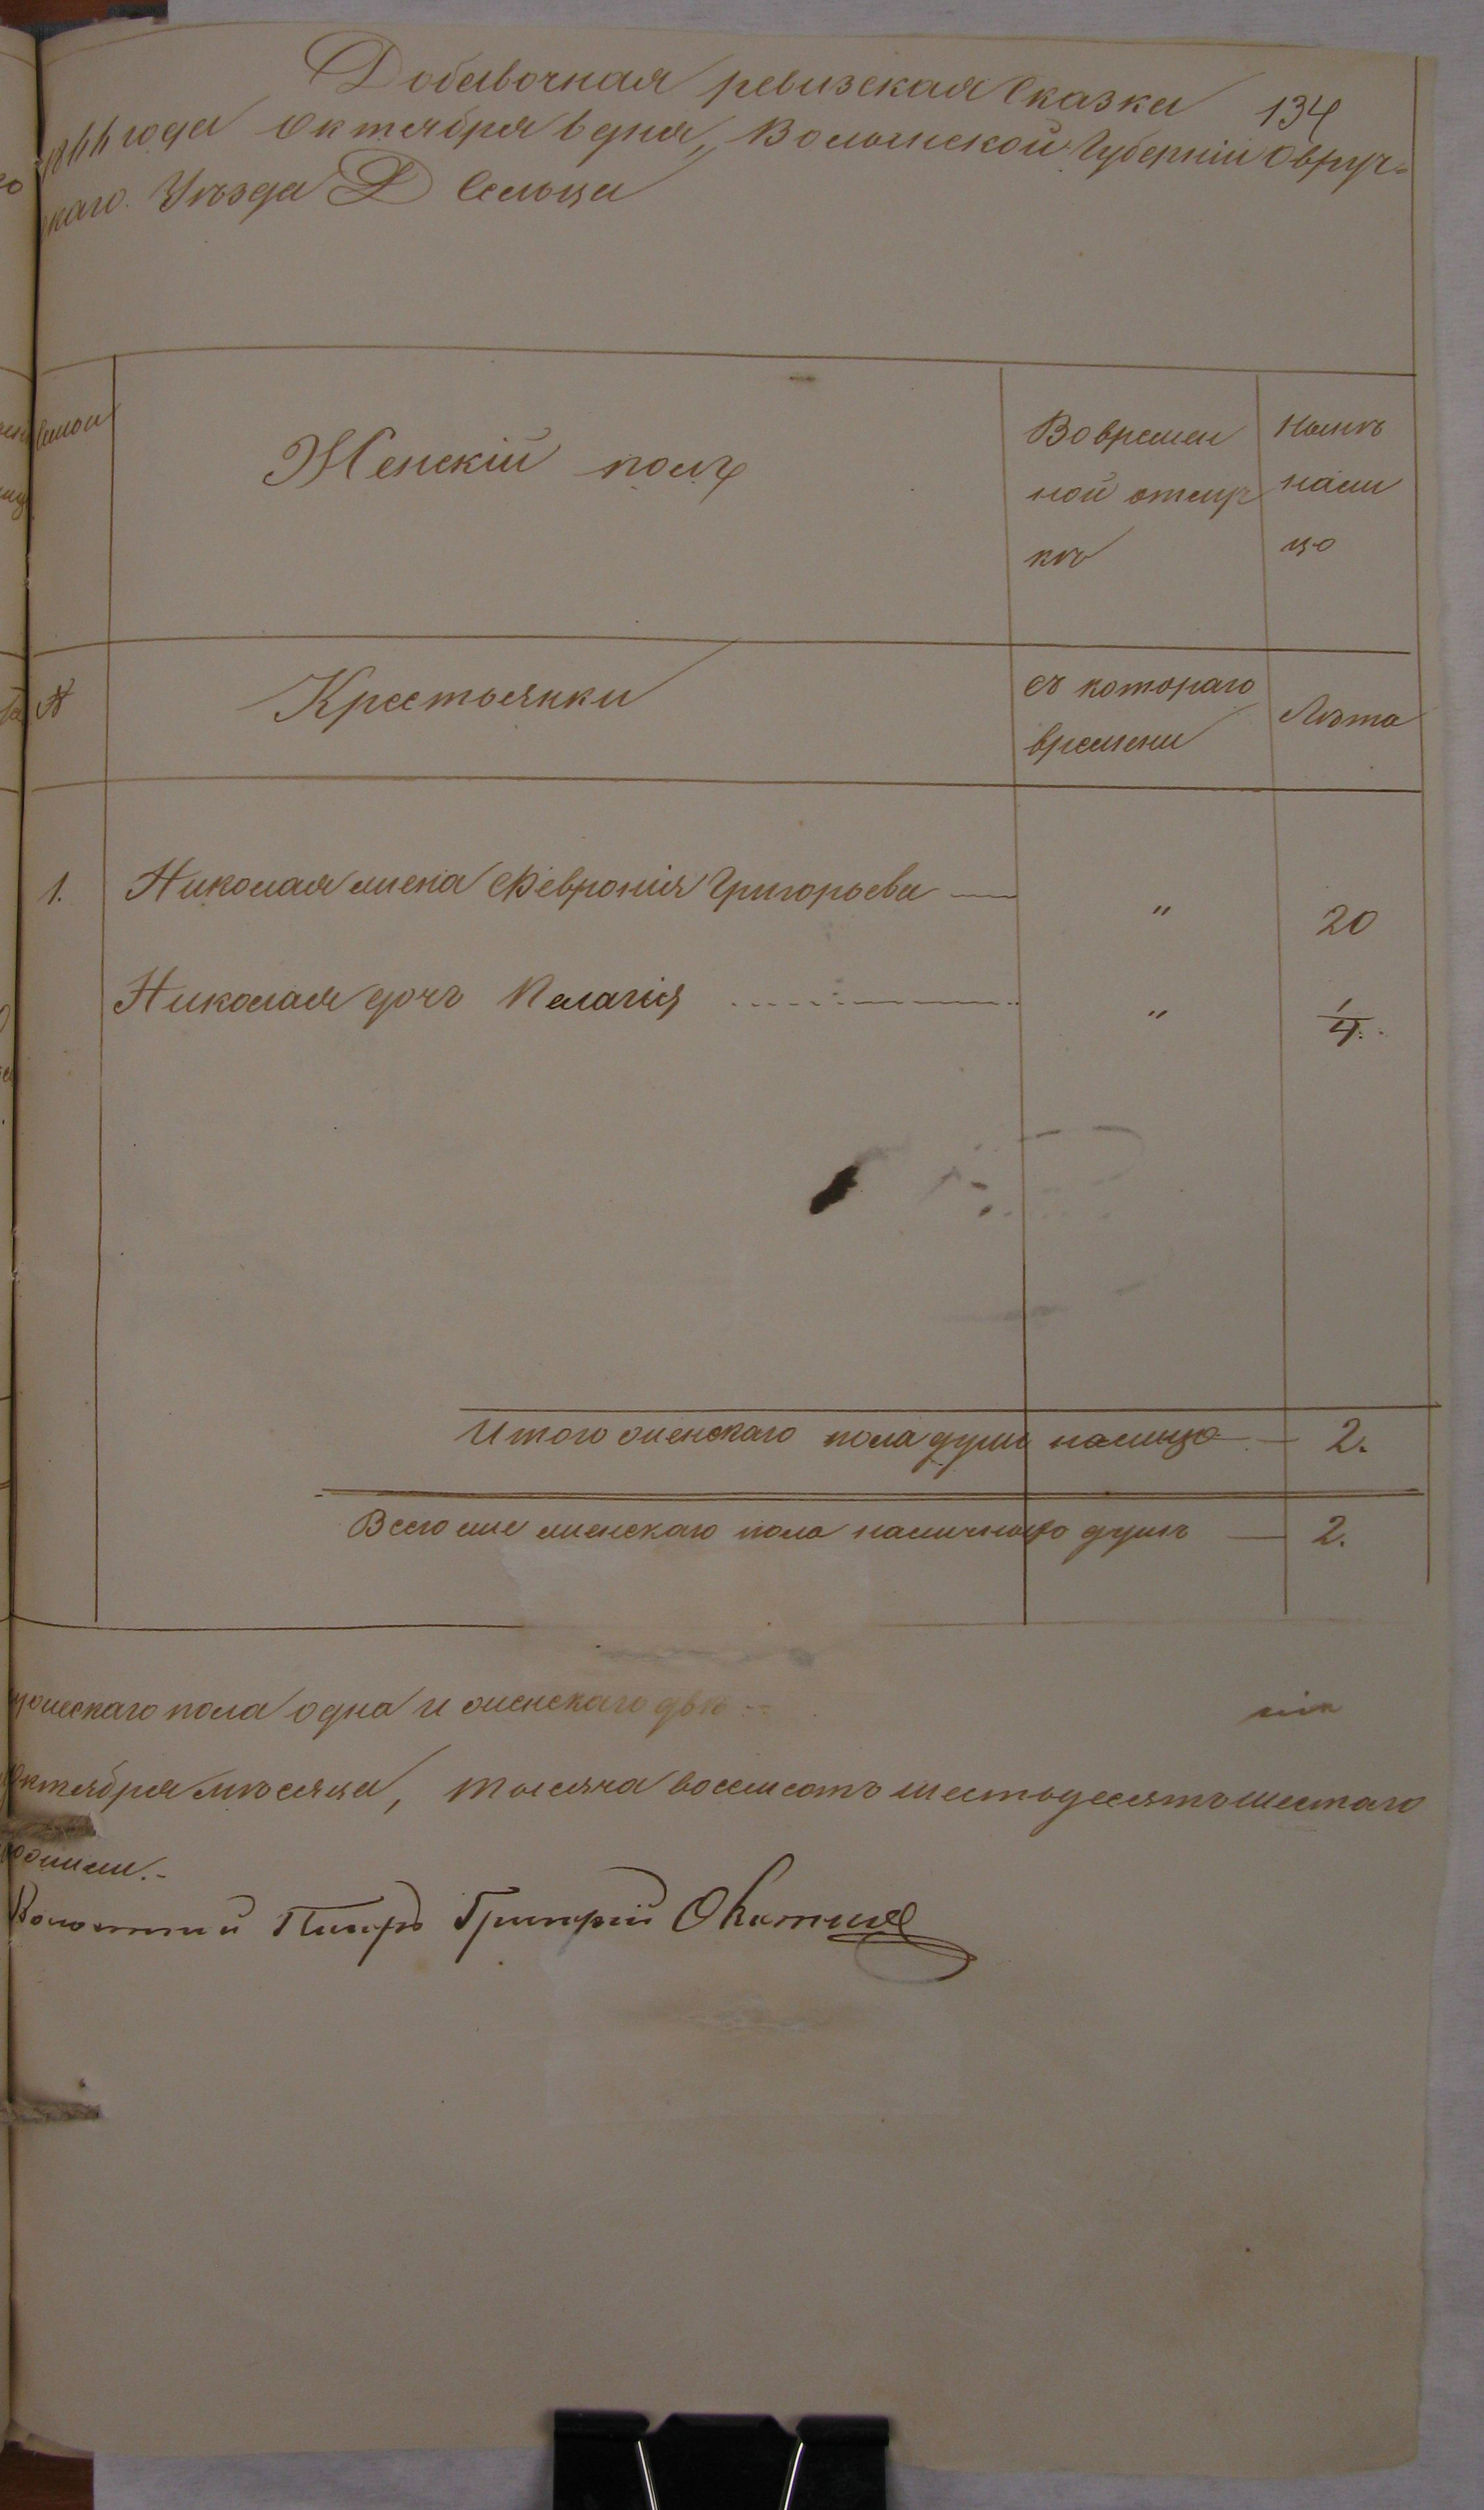 Добавочная ревизская сказка
134
1866 года Октября 6 дня, Волынской Губернiи Овруч=
скаго Уѣзда Д Сельца
Семьи
Женскiй полъ
Во времен
ной отлуч
кѣ
Нынѣ
нали
цо
№
Крестьянки
съ котораго
времени
Лѣта
1. Николая жена Февронiя Григорьева " 20
Николая дочь Пелагiя " 1/4.
Итого женскаго пола душъ налицо — 2.
Всего же женскаго пола наличныхъ душъ — 2.
мужескаго пола одна и женскаго двѣ
Октября мѣсяца, тысяча восемсотъ шестьдесятъ шестаго
Волостный Писарь Григорiй